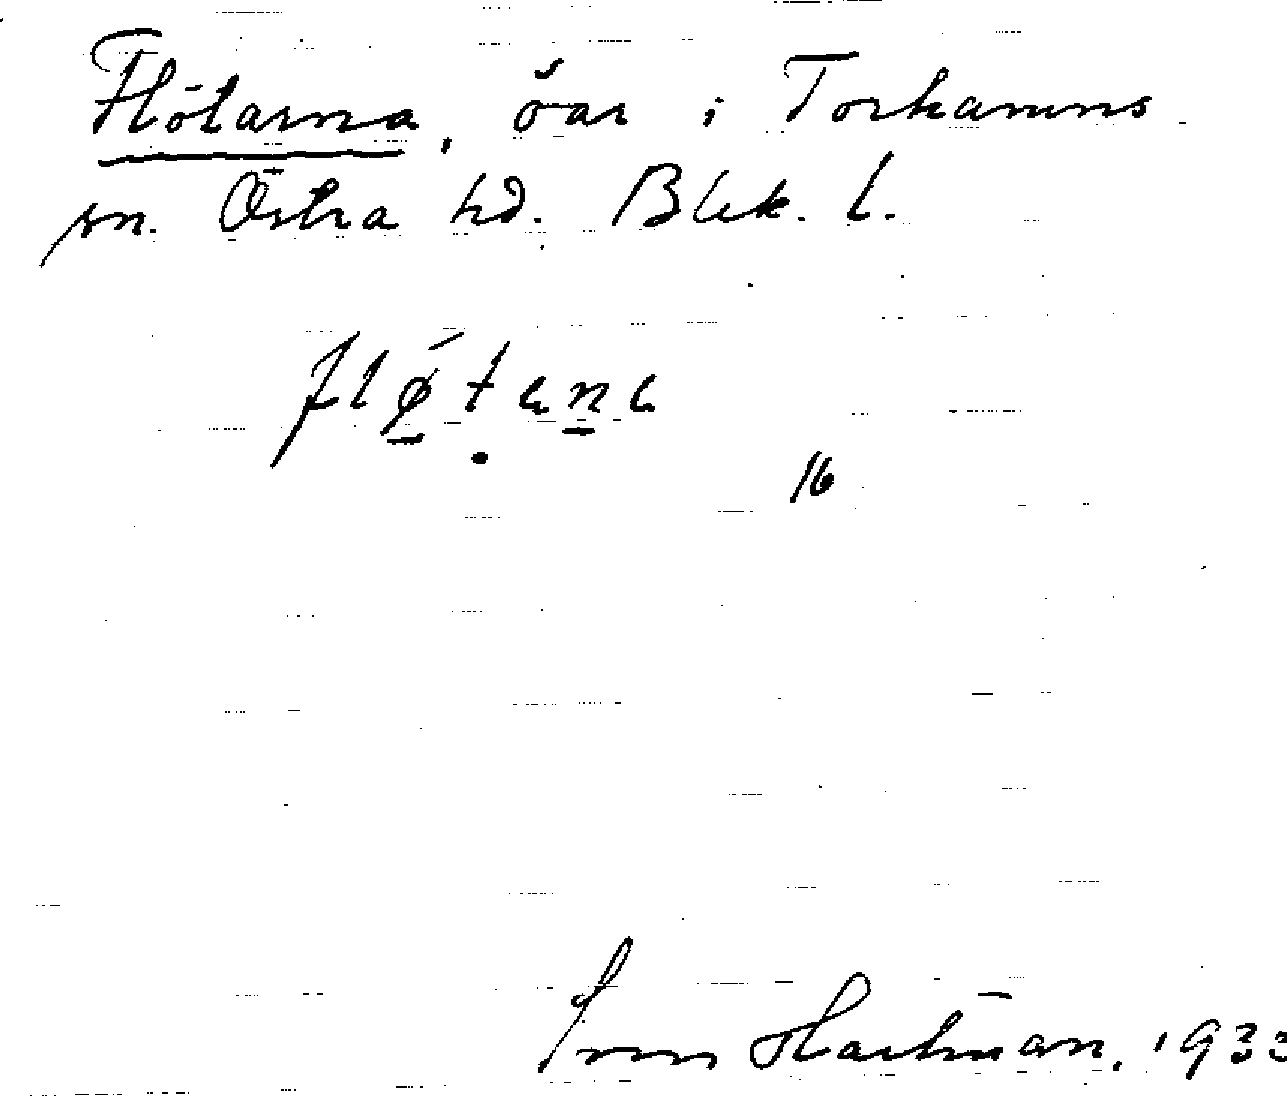 Flötarna, öar i Torhamns
sn. Östra hd. Blek. l.
flǿ̱tạṉa
16
Hartman, 1933